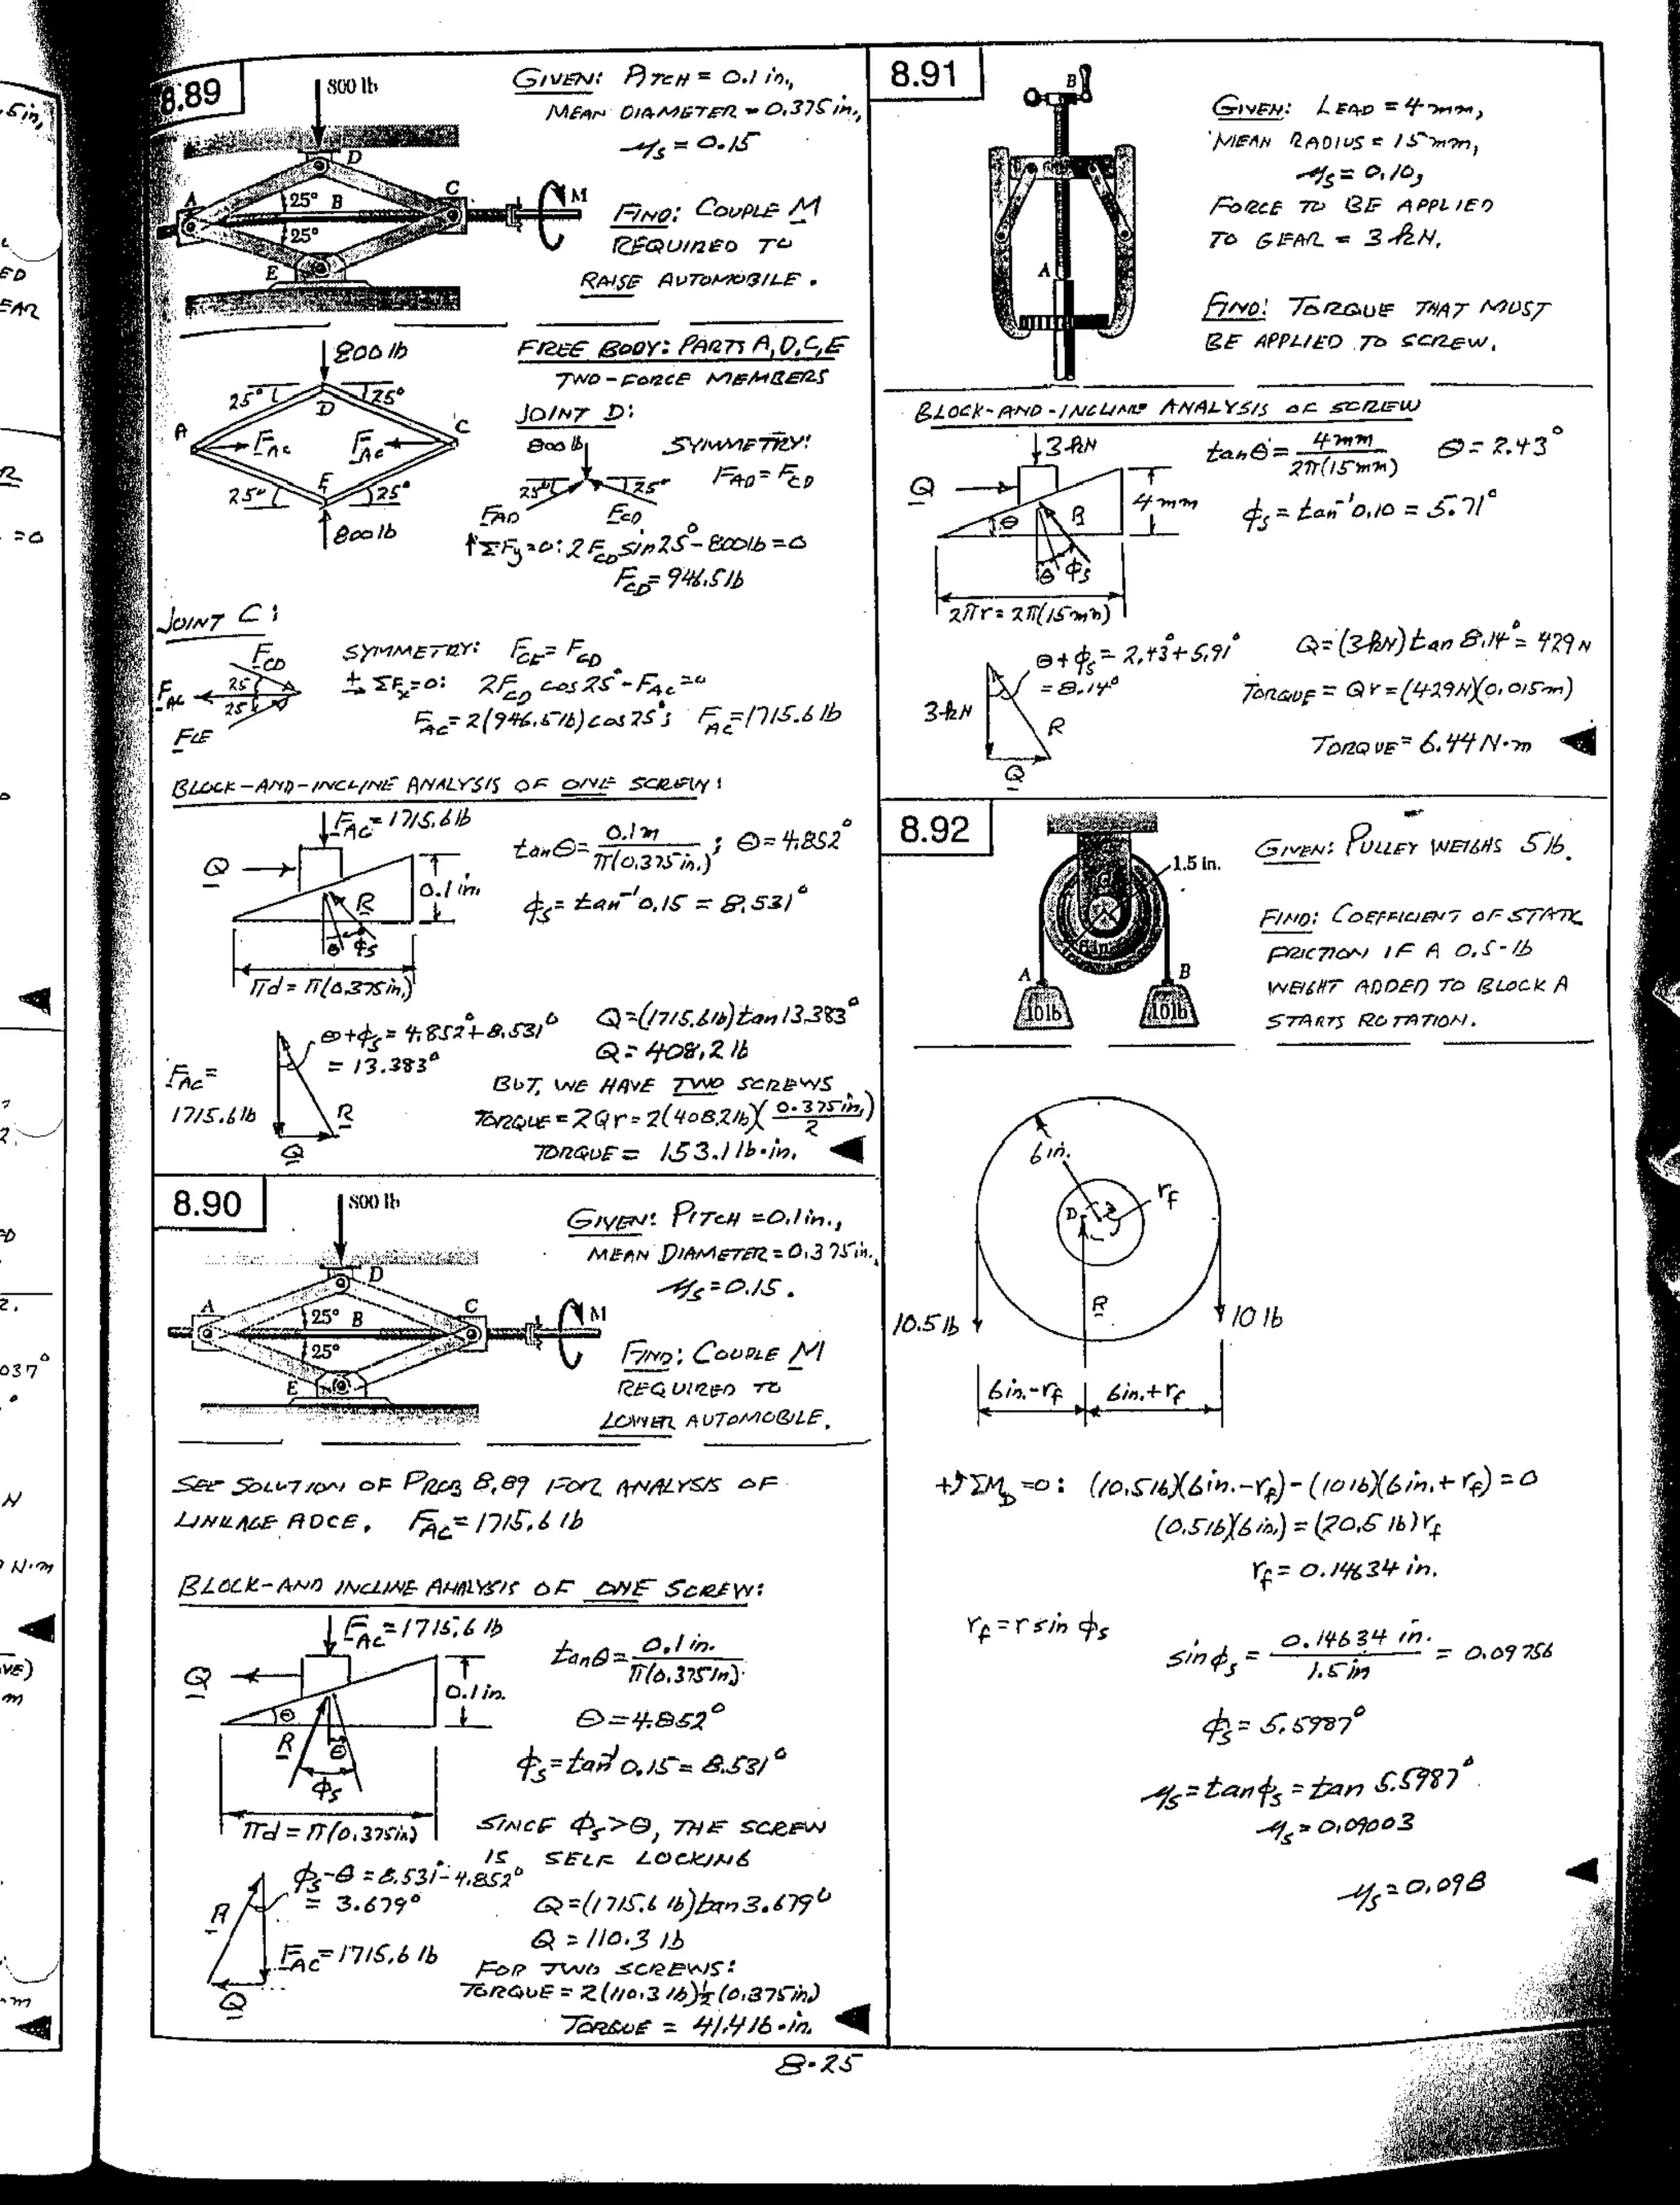 8.89
800 lb
GIVEN: PITCH = 0.1 in.,
MEAN DIAMETER = 0.375 in.,
μs = 0.15
D
A
25° B
C
M
25°
E
FIND: COUPLE M
REQUIRED TO
RAISE AUTOMOBILE.
800 lb
FREE BODY: PARTS A,D,C,E
TWO-FORCE MEMBERS
25°
25°
D
A
C
FAC
FAC
25°
E
25°
800 lb
JOINT D:
800 lb
SYMMETRY:
FAD = FCD
25°
25°
FAD
FCD
↑ΣFy=0: 2FCD sin25°-800lb=0
FCD=946.5lb
JOINT C:
FCD
FAC
25
25
FCE
SYMMETRY: FCE = FCD
± ΣFx=0: 2FCD cos25°-FAC=0
FAC=2(946.5lb)cos25°; FAC=1715.6 lb
BLOCK-AND-INCLINE ANALYSIS OF ONE SCREW:
FAC=1715.6lb
Q
R
0.1 in.
θ φs
πd = π(0.375in.)
tanθ = 0.1m / π(0.375in.) ; θ=4.852°
φs = tan⁻¹0.15 = 8.531°
θ+φs = 4.852°+8.531°
= 13.383°
FAC=
1715.6lb
R
Q
Q=(1715.6lb)tan13.383°
Q = 408.2 lb
BUT, WE HAVE TWO SCREWS
TORQUE = 2Qr = 2(408.2lb)(0.375in./2)
TORQUE = 153.1 lb·in.
8.90
800 lb
GIVEN: PITCH = 0.1 in.,
MEAN DIAMETER = 0.375in.,
μs = 0.15.
D
A
25° B
C
M
25°
E
FIND: COUPLE M
REQUIRED TO
LOWER AUTOMOBILE.
SEE SOLUTION OF PROB 8.89 FOR ANALYSIS OF
LINKAGE ADCE. FAC=1715.6 lb
BLOCK-AND INCLINE ANALYSIS OF ONE SCREW:
FAC=1715.6 lb
Q
0.1 in.
θ
R
θ
φs
πd = π(0.375in)
tanθ = 0.1 in. / π(0.375in)
θ=4.852°
φs=tan⁻¹0.15= 8.531°
SINCE φs>θ, THE SCREW
IS SELF LOCKING
φs-θ = 8.531°-4.852°
= 3.679°
R
FAC=1715.6 lb
Q
Q=(1715.6 lb)tan3.679°
Q = 110.3 lb
FOR TWO SCREWS:
TORQUE = 2(110.3 lb)½(0.375in)
TORQUE = 41.4 lb·in.
8.91
B
A
GIVEN: LEAD = 4mm,
MEAN RADIUS = 15mm,
μs = 0.10,
FORCE TO BE APPLIED
TO GEAR = 3 kN.
FIND: TORQUE THAT MUST
BE APPLIED TO SCREW.
BLOCK-AND-INCLINE ANALYSIS OF SCREW
3kN
Q
4mm
θ
R
θ φs
2πr = 2π(15mm)
tanθ = 4mm / 2π(15mm) θ = 2.43°
φs = tan⁻¹0.10 = 5.71°
θ+φs = 2.43°+5.91°
= 8.14°
3kN
R
Q
Q=(3kN)tan 8.14°= 429 N
TORQUE = Qr = (429N)(0.015m)
TORQUE = 6.44 N·m
8.92
1.5 in.
A
B
10lb
10lb
GIVEN: PULLEY WEIGHS 5lb.
FIND: COEFFICIENT OF STATIC
FRICTION IF A 0.5-lb
WEIGHT ADDED TO BLOCK A
STARTS ROTATION.
6 in.
rf
D
R
10.5 lb
10 lb
6in.-rf
6in.+rf
+↺ΣMD=0: (10.5lb)(6in.-rf)-(10lb)(6in.+rf)=0
(0.5lb)(6in.)=(20.5 lb)rf
rf = 0.14634 in.
rf = r sin φs
sin φs = 0.14634 in. / 1.5in = 0.09756
φs = 5.5987°
μs = tanφs = tan 5.5987°
μs = 0.09003
μs = 0.098
8-25
5in,
ED
EAR
=0
037°
N
N·m
m